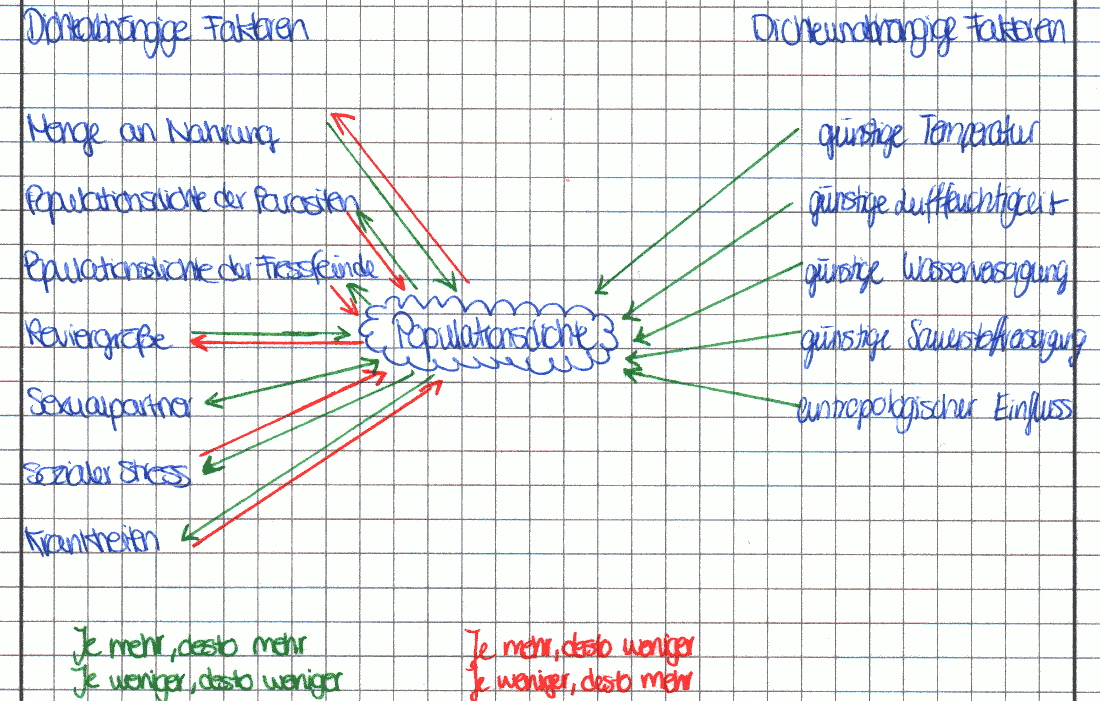 Dichteabhängige Faktoren
Dichteunabhängige Faktoren
Menge an Nahrung
Populationsdichte der Parasiten
Populationsdichte der Fressfeinde
Reviergröße
Sexualpartner
sozialer Stress
Krankheiten
Populationsdichte
günstige Temperatur
günstige Luftfeuchtigkeit
günstige Wasserversorgung
günstige Sauerstoffversorgung
antropologischer Einfluss
Je mehr, desto mehr
Je weniger, desto weniger
Je mehr, desto weniger
Je weniger, desto mehr